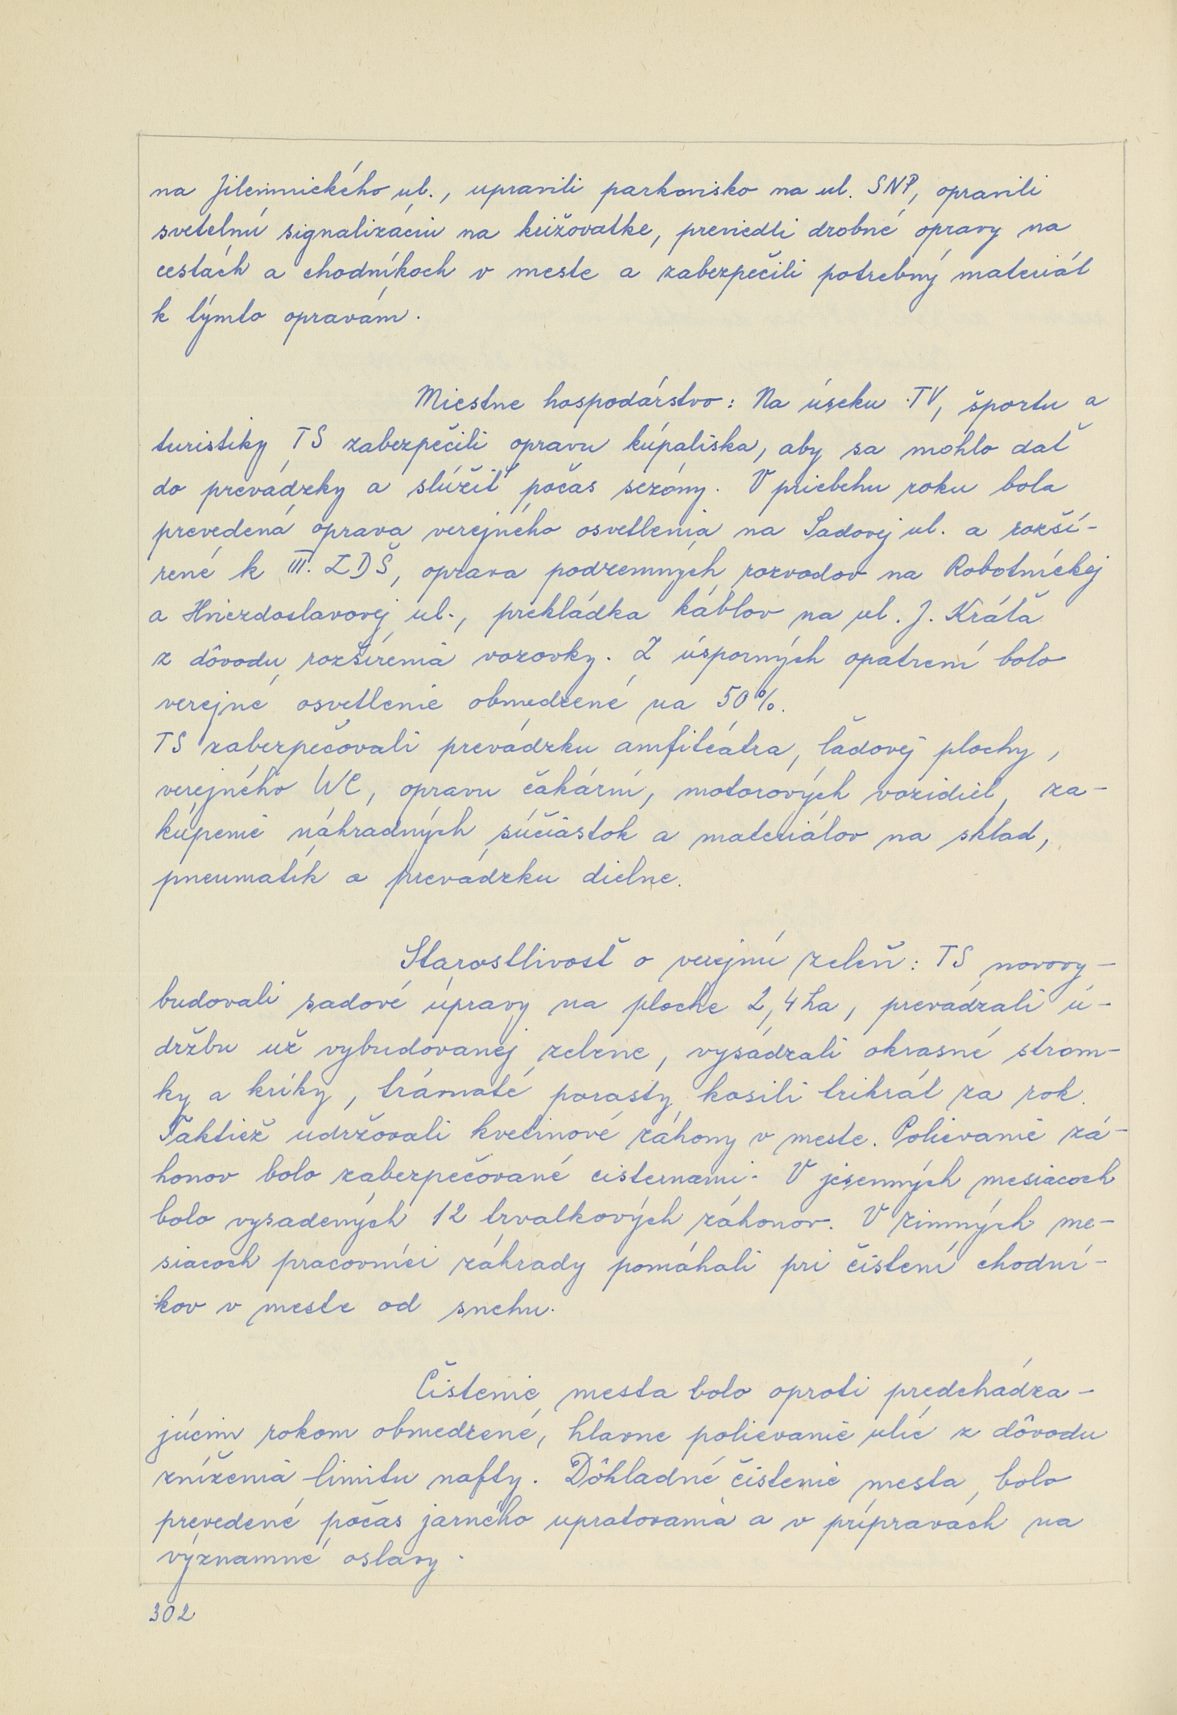 na Jilemnického ul., upravili parkovisko na ul. SNP, opravili
svetelnú signalizáciu na križovatke, previedli drobné opravy na
cestách a chodníkoch v meste a zabezpečili potrebný materiál
k týmto opravám.
Miestne hospodárstvo: Na úseku TV, športu a
turistiky TS zabezpečili opravu kúpaliska, aby sa mohlo dať
do prevádzky a slúžiť počas sezóny. V priebehu roku bola
prevedená oprava verejného osvetlenia na Sadovej ul. a rozší-
rené k III. ZDŠ, oprava podzemných rozvodov na Robotníckej
a Hviezdoslavovej ul., prekládka káblov na ul. J. Kráľa
z dôvodu rozšírenia vozovky. Z úsporných opatrení bolo
verejné osvetlenie obmedzené na 50%.
TS zabezpečovali prevádzku amfiteátra, ľadovej plochy,
verejného WC, opravu čakární, motorových vozidiel, za-
kúpenie náhradných súčiastok a materiálov na sklad,
pneumatík a prevádzku dielne.
Starostlivosť o verejnú zeleň: TS novovy-
budovali sadové úpravy na ploche 2,4 ha, prevádzali ú-
držbu už vybudovanej zelene, vysádzali okrasné strom-
ky a kríky, trávnaté porasty kosili trikrát za rok.
Taktiež udržovali kvetinové záhony v meste. Polievanie zá-
honov bolo zabezpečované cisternami. V jesenných mesiacoch
bolo vysadených 12 trvalkových záhonov. V zimných me-
siacoch pracovníci záhrady pomáhali pri čistení chodní-
kov v meste od snehu.
Čistenie mesta bolo oproti predchádza-
júcim rokom obmedzené, hlavne polievanie ulíc z dôvodu
zníženia limitu nafty. Dôkladné čistenie mesta bolo
prevedené počas jarného upratovania a v prípravách na
významné oslavy.
302